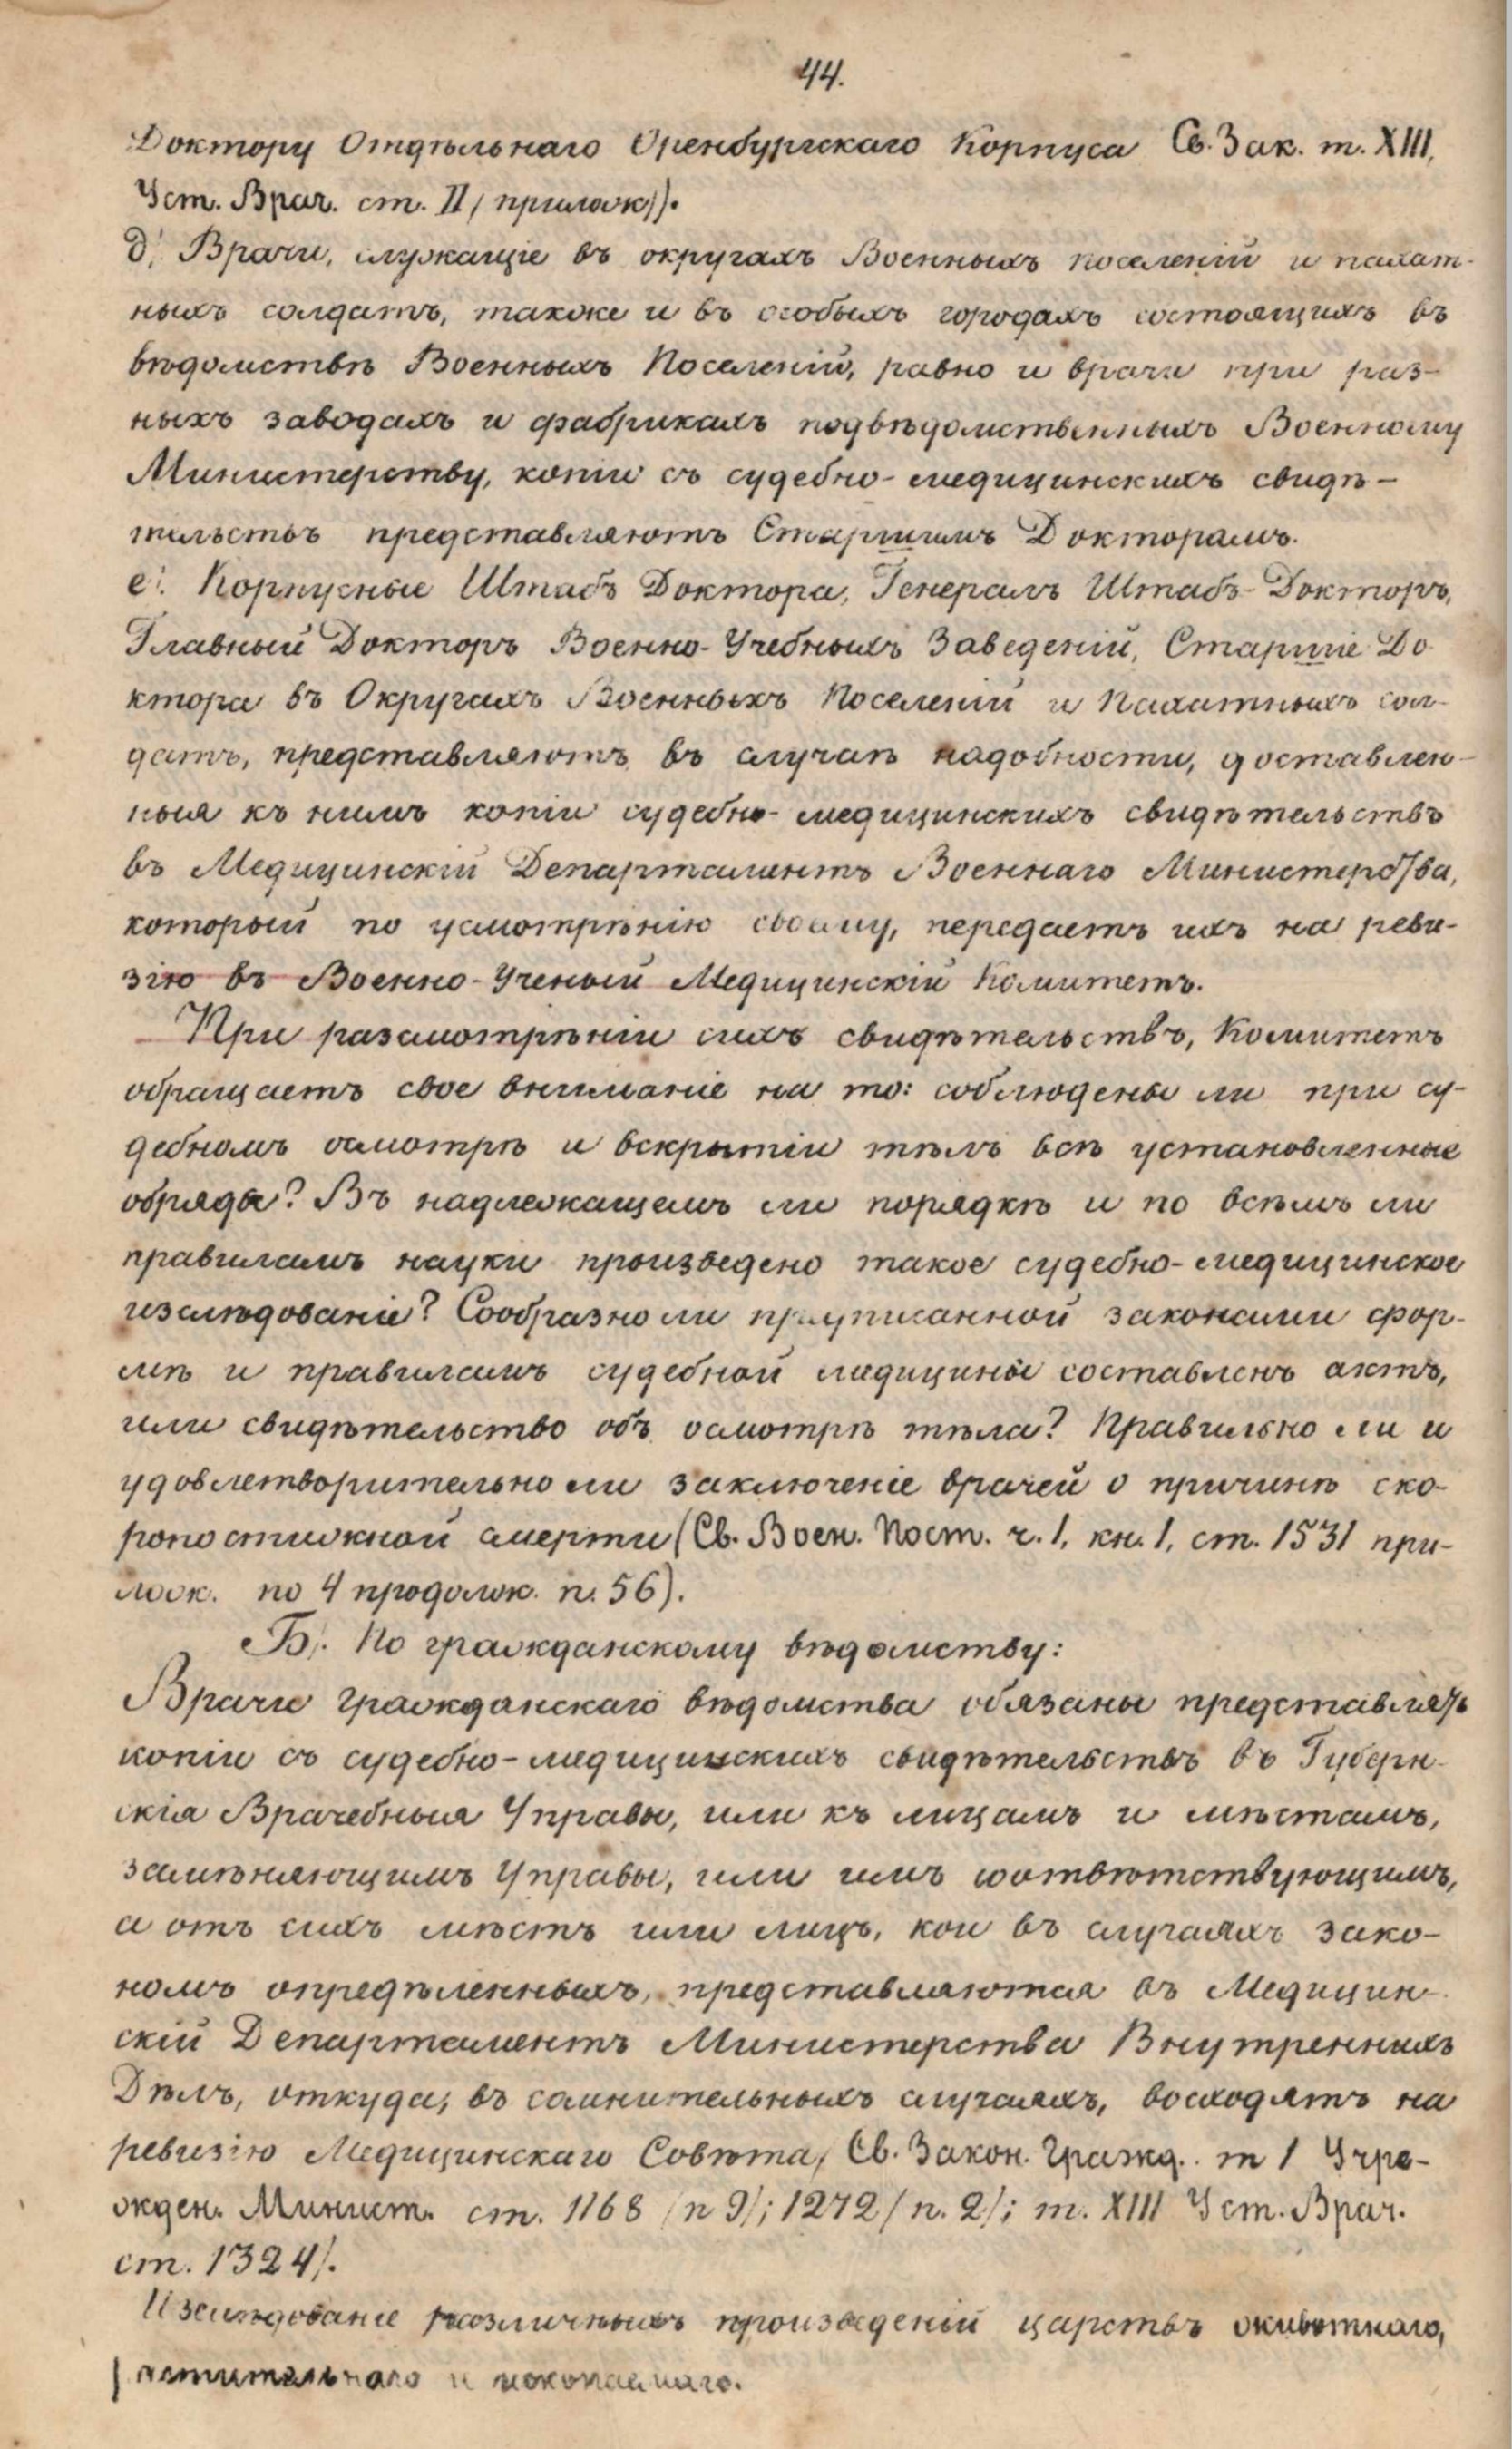 44.
Доктору Отдѣльнаго Оренбургскаго Корпуса Св. Зак. т. XIII,
Уст. Врач. ст. II (прилож)).
д). Врачи, служащіе въ округахъ Военныхъ поселеній и пахат-
ныхъ солдатъ, также и въ особыхъ городахъ состоящихъ въ
вѣдомствѣ Военныхъ Поселеній, равно и врачи при раз-
ныхъ заводахъ и фабрикахъ подвѣдомственныхъ Военному
Министерству, копіи съ судебно-медицинскихъ свидѣ-
тельствъ представляютъ Старшимъ Докторамъ.
е). Корпусные Штабъ Доктора, Генералъ Штабъ-Докторъ,
Главный Докторъ Военно-Учебныхъ Заведеній, Старшіе До-
ктора въ Округахъ Военныхъ Поселеній и Пахатныхъ сол-
датъ, представляютъ въ случаѣ надобности, доставлен-
ныя къ нимъ копіи судебно-медицинскихъ свидѣтельствъ
въ Медицинскій Департаментъ Военнаго Министерства,
который по усмотрѣнію своему, передаетъ ихъ на реви-
зію въ Военно-Ученый Медицинскій Комитетъ.
При разсмотрѣніи сихъ свидѣтельствъ, Комитетъ
обращаетъ свое вниманіе на то: соблюдены ли при су-
дебномъ осмотрѣ и вскрытіи тѣлъ всѣ установленные
обряды? Въ надлежащемъ ли порядкѣ и по всѣмъ ли
правиламъ науки произведено такое судебно-медицинское
изслѣдованіе? Сообразно ли предписанной законами фор-
мѣ и правиламъ судебной медицины составленъ актъ,
или свидѣтельство объ осмотрѣ тѣла? Правильно ли и
удовлетворительно ли заключеніе врачей о причинѣ ско-
ропостижной смерти (Св. Воен. Пост. ч. 1, кн. 1, ст. 1531 при-
лож. по 4 продолж. п. 56).
Б). По гражданскому вѣдомству:
Врачи гражданскаго вѣдомства обязаны представлять
копіи съ судебно-медицинскихъ свидѣтельствъ въ Губерн-
скія Врачебныя Управы, или къ лицамъ и мѣстамъ,
замѣняющимъ Управы, или имъ соотвѣтствующимъ,
а отъ сихъ мѣстъ или лицъ, кои въ случаяхъ зако-
номъ опредѣленныхъ, представляются въ Медицин-
скій Департаментъ Министерства Внутреннихъ
Дѣлъ, откуда, въ сомнительныхъ случаяхъ, восходятъ на
ревизію Медицинскаго Совѣта, Св. Закон. Гражд. т 1 Учре-
жден. Минист. ст. 1168 (п 9); 1272 (п. 2); т. XIII Уст. Врач.
ст. 1324).
Изслѣдованіе различныхъ произведеній царствъ животнаго,
растительнаго и ископаемаго.